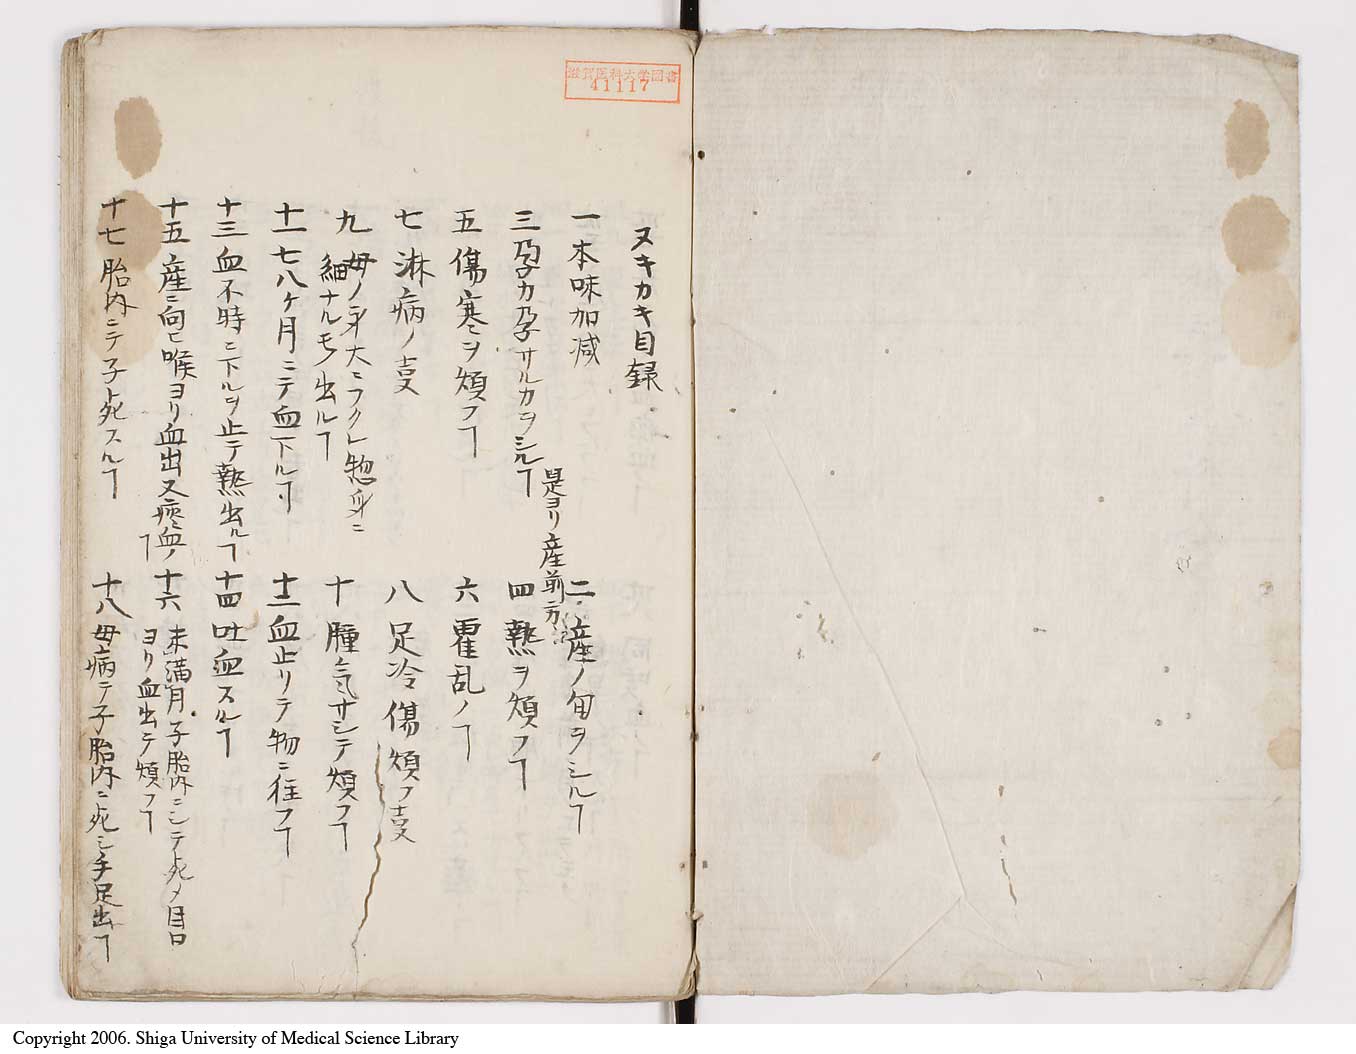 滋賀医科大学図書
41117
ヌキカキ目録
一 本味加減
二 産ノ旬ヲシルヿ
是ヨリ産前方
三 孕カ孕サルカヲシルヿ
四 熱ヲ煩フヿ
五 傷寒ヲ煩フヿ
六 霍乱ノヿ
七 淋病ノ叓
八 足冷傷煩フ叓
九 母ノ身大ニフクレ惣身ニ
細ナルモノ出ルヿ
十 腫気サシテ煩フヿ
十一 七八ケ月ニテ血下ルヿ
十二 血止リテ物ニ狂フヿ
十三 血不時ニ下ルヲ止テ熱出ルヿ
十四 吐血スルヿ
十五 産ニ向ヒ喉ヨリ血出又痰血ノ
ヿ
十六 未満月子胎内ニシテ死メ目口
ヨリ血出テ煩フヿ
十七 胎内ニテ子死スルヿ
十八 母病テ子胎内ニ死シ手足出ヿ
Copyright 2006. Shiga University of Medical Science Library